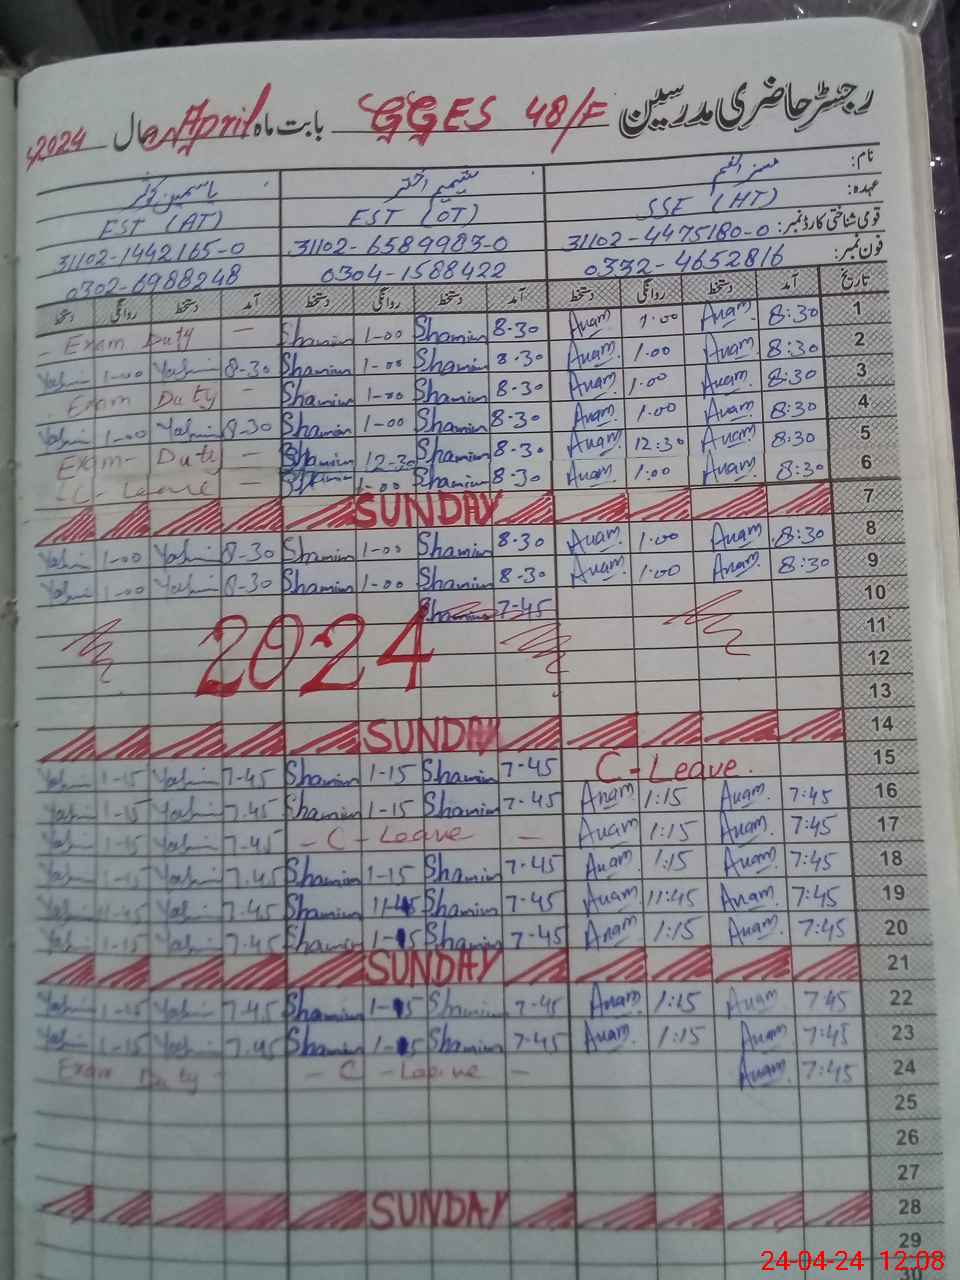 رجسٹر حاضری مدرسین GGES 48/F بابت ماہ April سال 2024ء
نام:
عہدہ: SSE (HT) EST (OT) EST (AT)
قومی شناختی کارڈ نمبر: 31102-4475180-0 31102-6589983-0 31102-1442165-0
فون نمبر: 0332-4652816 0304-1588422 0302-6988248
تاریخ آمد دستخط روانگی دستخط آمد دستخط روانگی دستخط آمد دستخط روانگی دستخط
1 8:30 Anam 1.00 Anam 8-30 Shamim 1-00 Shamim — Exam Duty -
2 8:30 Anam 1.00 Anam 8-30 Shamim 1-00 Shamim 8-30 Yasmin 1-00 Yasmin
3 8:30 Anam 1.00 Anam 8-30 Shamim 1-00 Shamim — Exam Duty
4 8:30 Anam 1.00 Anam 8-30 Shamim 1-00 Shamim 8-30 Yasmin 1-00 Yasmin
5 8:30 Anam 12:30 Anam 8-30 Shamim 12-30 Shamim — Exam- Duty
6 8:30 Anam 1:00 Anam 8-30 Shamim 1-00 Shamim — C- Leave
7 SUNDAY
8 8:30 Anam 1.00 Anam 8-30 Shamim 1-00 Shamim 8-30 Yasmin 1-00 Yasmin
9 8:30 Anam 1:00 Anam 8-30 Shamim 1-00 Shamim 8-30 Yasmin 1-00 Yasmin
10 7-45 Shamim
11
12 2024
13
14 SUNDAY
15 C-Leave. 7-45 Shamim 1-15 Shamim 7-45 Yasmin 1-15 Yasmin
16 7:45 Anam 1:15 Anam 7-45 Shamim 1-15 Shamim 7.45 Yasmin 1-15 Yasmin
17 7:45 Anam 1:15 Anam — C - Leave - 7.45 Yasmin 1-15 Yasmin
18 7:45 Anam 1:15 Anam 7-45 Shamim 1-15 Shamim 7.45 Yasmin 1-15 Yasmin
19 7:45 Anam 11:45 Anam 7-45 Shamim 11-45 Shamim 7.45 Yasmin 11-45 Yasmin
20 7:45 Anam 1:15 Anam 7-45 Shamim 1-15 Shamim 7.45 Yasmin 1-15 Yasmin
21 SUNDAY
22 7:45 Anam 1:15 Anam 7-45 Shamim 1-15 Shamim 7.45 Yasmin 1-15 Yasmin
23 7:45 Anam 1:15 Anam 7-45 Shamim 1-15 Shamim 7.45 Yasmin 1-15 Yasmin
24 7:45 Anam - C - Leave - Exam Duty -
25
26
27
28 SUNDAY
29
30
24-04-24 12:08